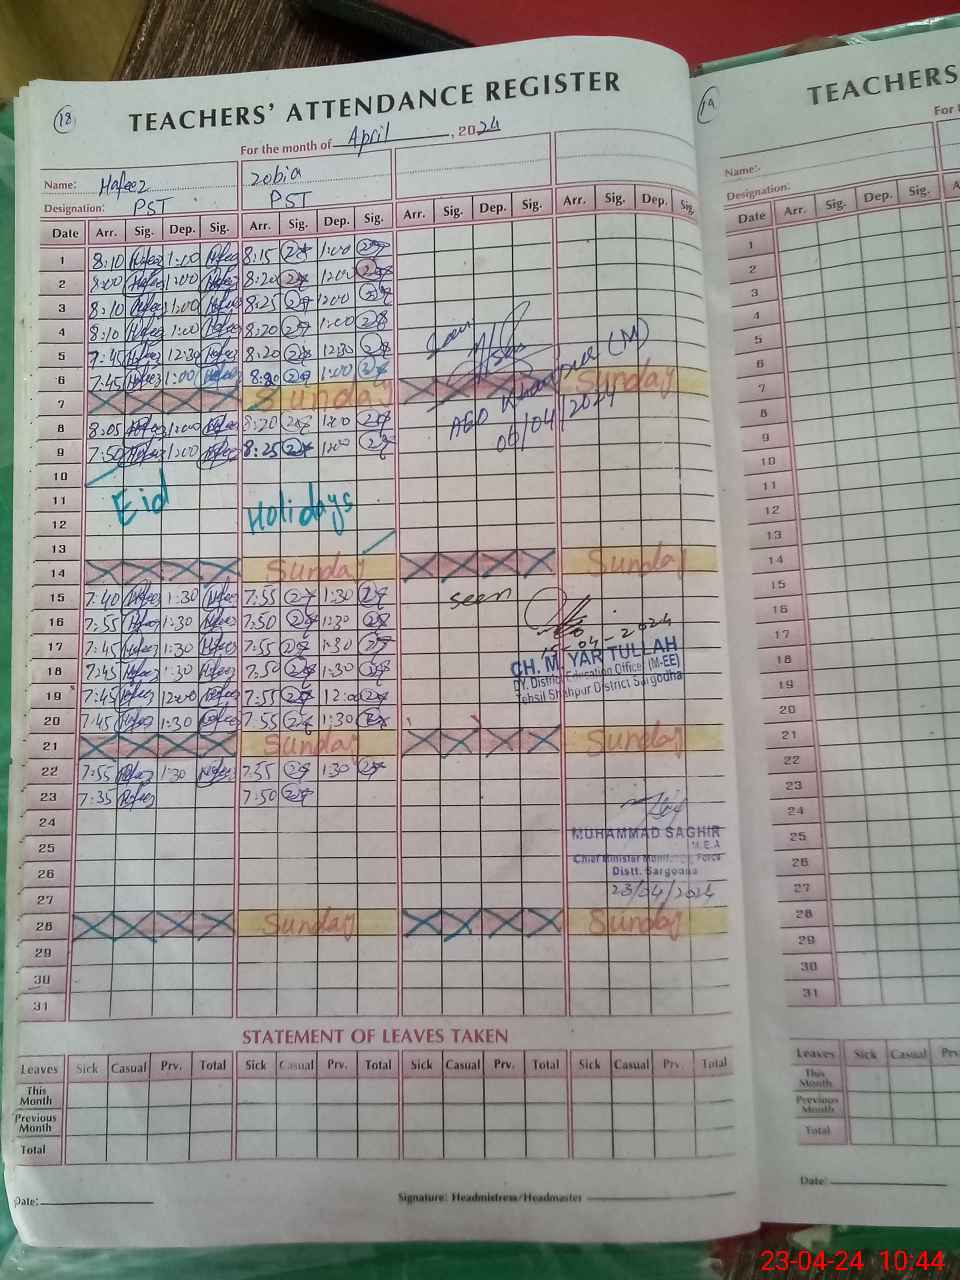 18
TEACHERS' ATTENDANCE REGISTER
For the month of April, 2024
Name: Hafeez Zobia
Designation: PST PST
Date Arr. Sig. Dep. Sig. Arr. Sig. Dep. Sig. Arr. Sig. Dep. Sig. Arr. Sig. Dep. Sig.
1 8:10 Hafeez 1:00 Hafeez 8:15 1:00
2 8:00 Hafeez 1:00 Hafeez 8:20 12:00
3 8:10 Hafeez 1:00 Hafeez 8:25 12:00
4 8:10 Hafeez 1:00 Hafeez 8:20 1:00
5 7:45 Hafeez 12:30 Hafeez 8:20 12:30
6 7:45 Hafeez 1:00 Hafeez 8:20 1:00
7 Sunday Sunday
Seen
AEO (M)
06/04/2024
8 8:05 Hafeez Hafeez 8:20
9 7:50 Hafeez Hafeez 8:25
10
11 Eid Holidays
12
13
14 Sunday Sunday
15 7:40 Hafeez 1:30 Hafeez 7:55 1:30
16 7:55 Hafeez 1:30 Hafeez 7:50 1:30
17 7:45 Hafeez 1:30 Hafeez 7:55 1:30
18 7:45 Hafeez 1:30 Hafeez 7:50 1:30
19 7:45 Hafeez 12:00 Hafeez 7:55 12:00
20 7:45 Hafeez 1:30 Hafeez 7:55 1:30
seen
15-04-2024
CH. M. YAR TULLAH
DY. District Education Officer (M-EE)
Tehsil Shahpur District Sargodha
21 Sunday Sunday
22 7:55 Hafeez 1:30 Hafeez 7:55 1:30
23 7:35 Hafeez 7:50
24
25
26
27
MUHAMMAD SAGHIR
M.E.A
Chief Minister Monitoring Force
Distt. Sargodha
23/04/2024
28 Sunday Sunday
29
30
31
STATEMENT OF LEAVES TAKEN
Leaves Sick Casual Prv. Total Sick Casual Prv. Total Sick Casual Prv. Total Sick Casual Prv. Total
This Month
Previous Month
Total
Date:
Signature: Headmistress/Headmaster
19
TEACHERS
For t
Name:-
Designation:
Date Arr. Sig. Dep. Sig. A
1
2
3
4
5
6
7
8
9
10
11
12
13
14
15
16
17
18
19
20
21
22
23
24
25
26
27
28
29
30
31
Leaves Sick Casual Prv
This Month
Previous Month
Total
Date:
23-04-24 10:44